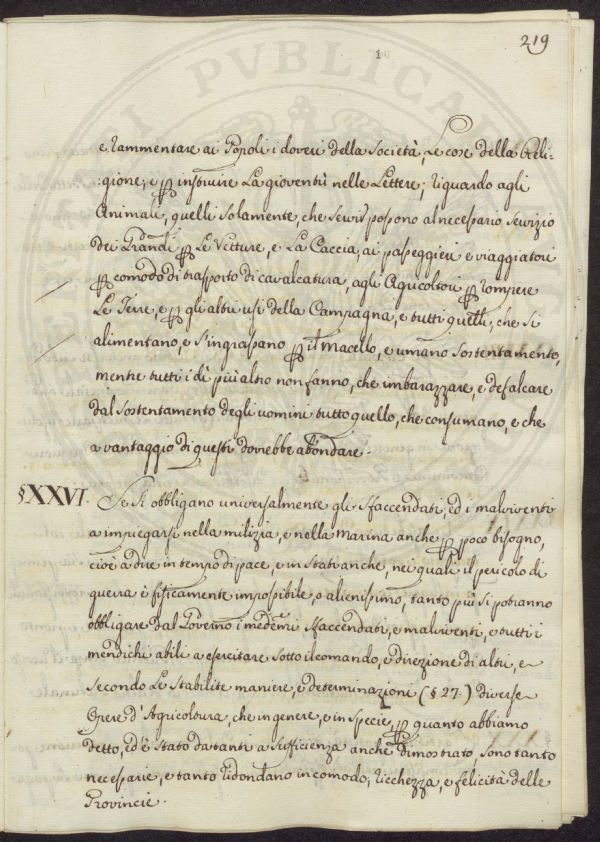 219
1
e rammentare ai Popoli i doveri della Società, le cose della Reli-
:gione, e p instruire la gioventù nelle Lettere; riguardo agli
Animali, quelli solamente, che servir possono al necessario servizio
dei Grandi p le Vetture, e la Caccia, ai passeggieri e viaggiatori
p comodo di trasporto di cavalcatura, agli Agricoltori p rompere
le Terre, e p gli altri usi della Campagna, e tutti quelli, che si
alimentano, e s'ingrassano p il macello, e umano sostentamento,
mentre tutti i di più altro non fanno, che imbarazzare, e defalcare
dal sostentamento degli uomini tutto quello, che consumano, e che
a vantaggio di questi dovrebbe abondare.
§XXVI. Se si obbligano universalmente gli sfaccendati, ed i malviventi
a impiegarsi nella milizia, e nella marina anche p poco bisogno,
cioè a dire in tempo di pace, e in Stati anche, nei quali il pericolo di
guerra è fisicamente impossibile, o alienissimo, tanto più si potranno
obbligare dal Governo i medemi sfaccendati, e malviventi, e tutti i
mendichi abili a esercitare sotto il comando, e direzione di altri, e
secondo le stabilite maniere, e determinazioni (§ 27.) diverse
Opere d'Agricoltura, che in genere, e in specie, p quanto abbiamo
detto, ed è stato da tanti a sufficienza anche dimostrato, sono tanto
necessarie, e tanto ridondano in comodo, ricchezza, e felicità delle
Provincie.